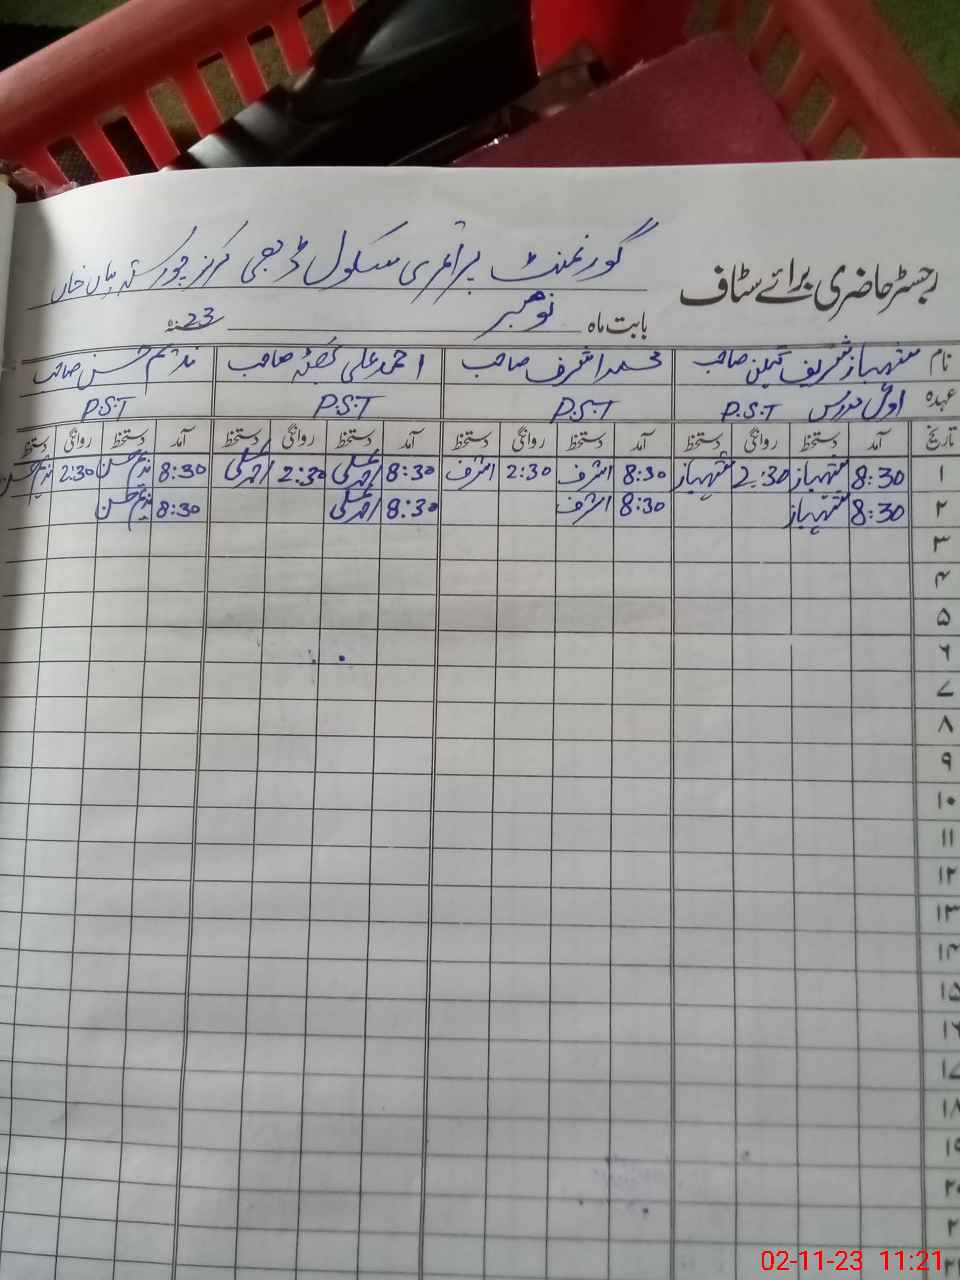 رجسٹر حاضری برائے سٹاف گورنمنٹ پرائمری سکول
بابت ماہ نومبر 23ء
نام شہباز شریف صاحب محمد اشرف صاحب احمد علی صاحب ندیم حسن صاحب
عہدہ اول مدرس P.S.T P.S.T P.S.T P.S.T
تاریخ آمد دستخط روانگی دستخط آمد دستخط روانگی دستخط آمد دستخط روانگی دستخط آمد دستخط روانگی دستخط
۱ 8:30 شہباز 2:30 شہباز 8:30 اشرف 2:30 اشرف 8:30 احمد علی 2:30 احمد علی 8:30 ندیم حسن 2:30 ندیم حسن
۲ 8:30 شہباز 8:30 اشرف 8:30 احمد علی 8:30 ندیم حسن
۳
۴
۵
۶
۷
۸
۹
۱۰
۱۱
۱۲
۱۳
۱۴
۱۵
۱۶
۱۷
۱۸
۱۹
۲۰
02-11-23 11:21